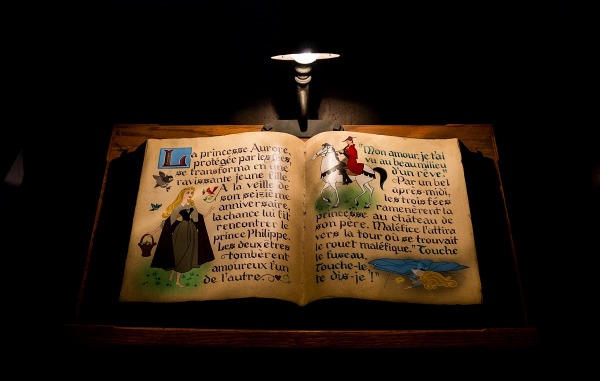 La princesse Aurore,
protégée par les fées,
se transforma en une
ravissante jeune fille.
A la veille de
son seizième
anniversaire,
la chance lui fit
rencontrer le
prince Philippe.
Les deux êtres
tombèrent
amoureux l'un
de l'autre.
"Mon amour, je t'ai
vu au beau milieu
d'un rêve."
Par un bel
après-midi,
les trois fées
ramenèrent la
princesse au château de
son père. Maléfice l'attira
vers la tour où se trouvait
le rouet maléfique." Touche
le fuseau.
Touche-le
te dis-je!"